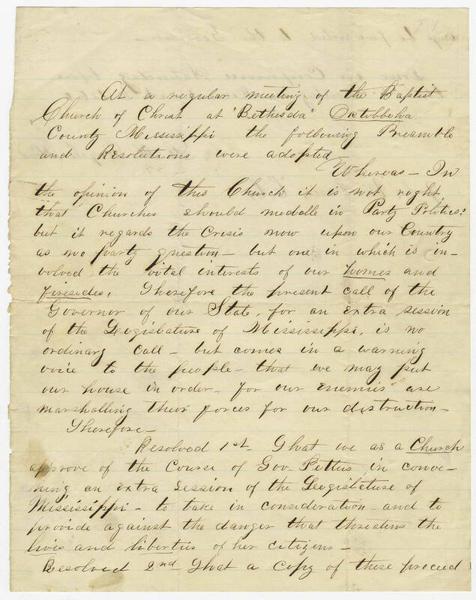 At a regular meeting of the Baptist
Church of Christ at "Bethesda" Oktobbeha
County Mississippi the following Preamble
and Resolutions were adopted
Whereas - In
the opinion of this Church it is not right
that Churches should meddle in Party Politics:
but it regards the Crisis now upon our Country
as no party question - but one in which is in-
volved the vital interests of our homes and
firesides. Therefore the present call of the
Governor of our State, for an extra session
of the Legislature of Mississippi, is no
ordinary Call - but comes in a warning
voice to the people - that we may put
our house in order - for our enemies are
marshalling their forces for our distruction -
Therefore -
Resolved 1st. That we as a Church
approve of the Course of Gov. Pettus in conve-
ning an extra Session of the Legislature of
Mississippi - to take in consideration - and to
provide against the danger that threatens the
lives and liberties of her citizens -
Resolved 2nd That a copy of these proceed